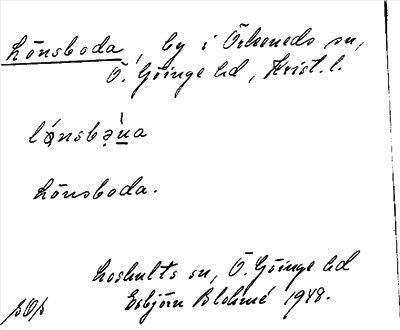 Lönsboda, by i Örkeneds sn,
Ö. Göinge hd, Krist. l.
Lönsboda.
Loshults sn, Ö. Göinge hd
Esbjörn Blohmé 1948.